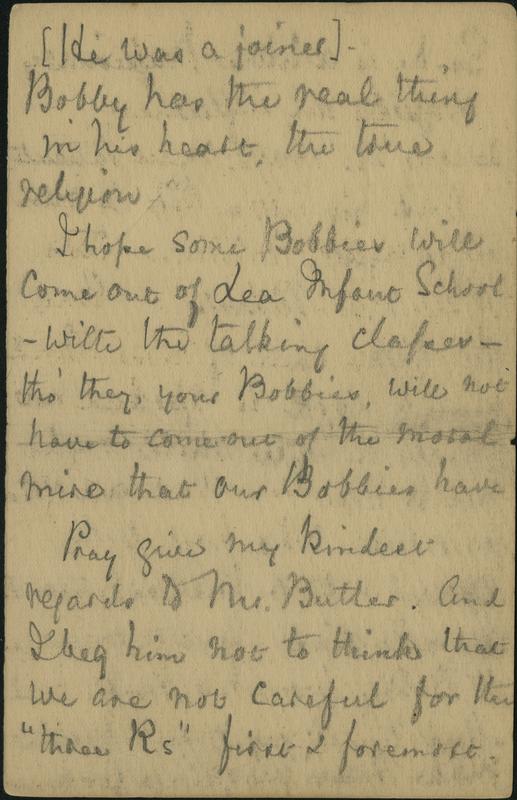 [He was a joiner].
Bobby has the real thing
in his heart, the true
religion
I hope some Bobbies will
come out of Lea Infant School
- with the talking classes -
tho' they, your Bobbies, will not
have to come out of the moral
mire that our Bobbies have
Pray give my kindest
regards to Mr. Butler. And
I beg him not to think that
we are not careful for the
"three Rs" first & foremost.